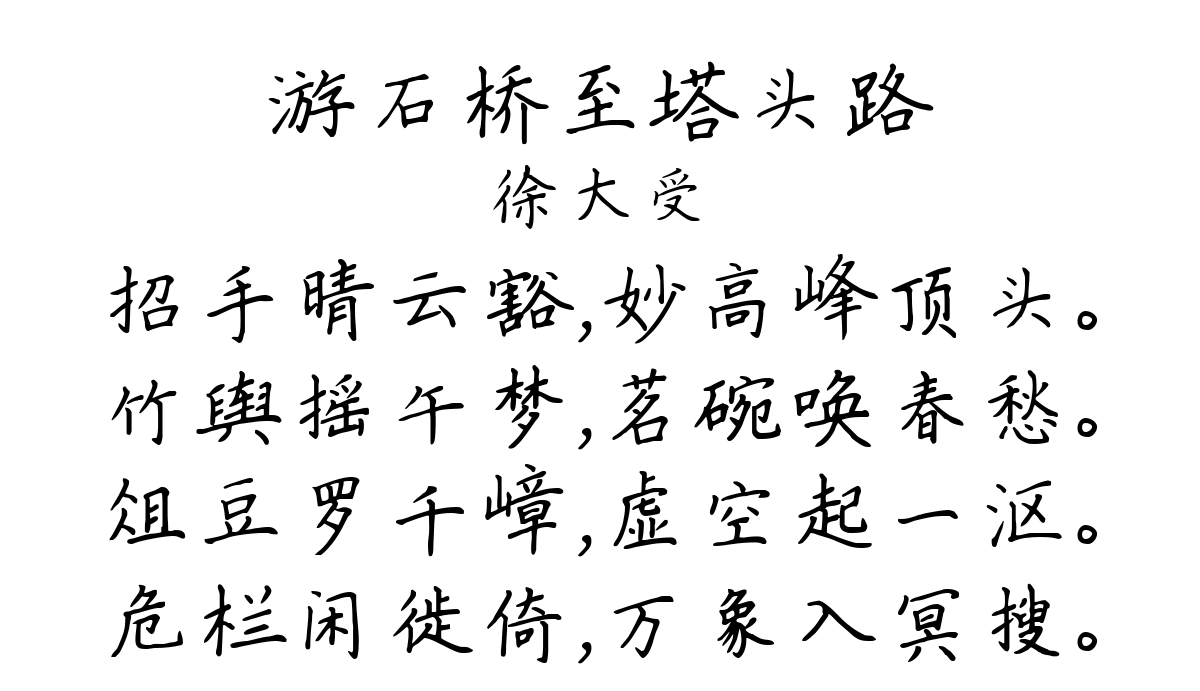 游石桥至塔头路
徐大受
招手晴云豁,妙高峰顶头。
竹舆摇午梦,茗碗唤春愁。
俎豆罗千嶂,虚空起一沤。
危栏闲徙倚,万象入冥搜。